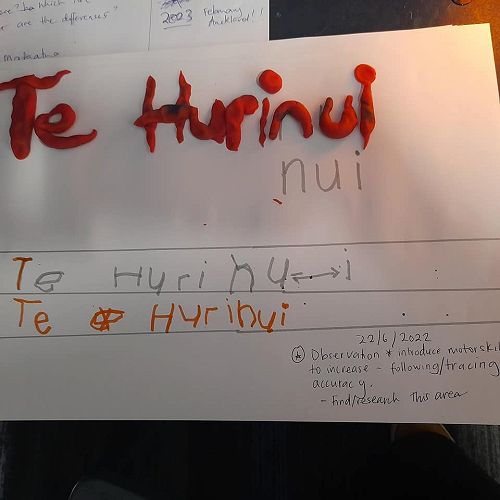 are the differences"
2023 February
Auckland!!
Te Hurinui
nui
Te Hurinui
Te Hurinui
22/6/2022
* Observation * introduce motorskil
to increase - following/tracing
accuracy.
- find/research This area